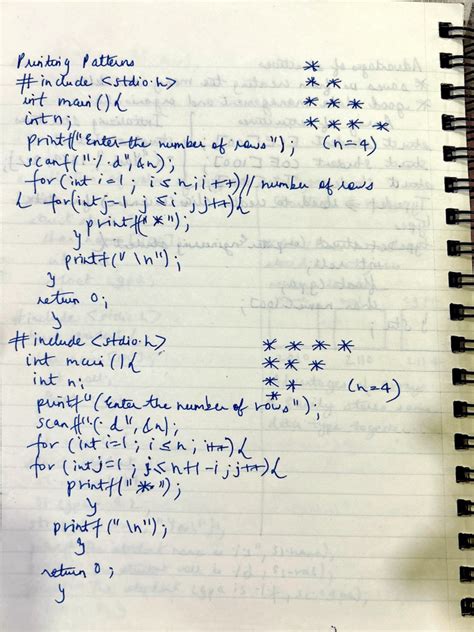 Printing Patterns *
#include <stdio.h> * *
int main () { * * *
int n; * * * *
printf("Enter the number of rows"); (n=4)
scanf("%d",&n);
for (int i=1; i≤n;i++)// number of rows
{ for(int j=1 j≤i; j++){
printf("*");
}
printf(" \n");
}
return 0;
}
#include <stdio.h> * * * *
int main () { * * *
int n; * * (n=4)
printf"(Enter the number of rows"); *
scanf("%d",&n);
for (int i=1; i≤n; i++){
for (int j=1; j≤n+1-i; j++){
printf("*");
}
printf(" \n");
}
return 0;
}